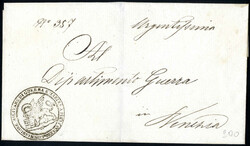 N° 357 Urgentissima
Al
Dipartimento Guerra
in
Venezia